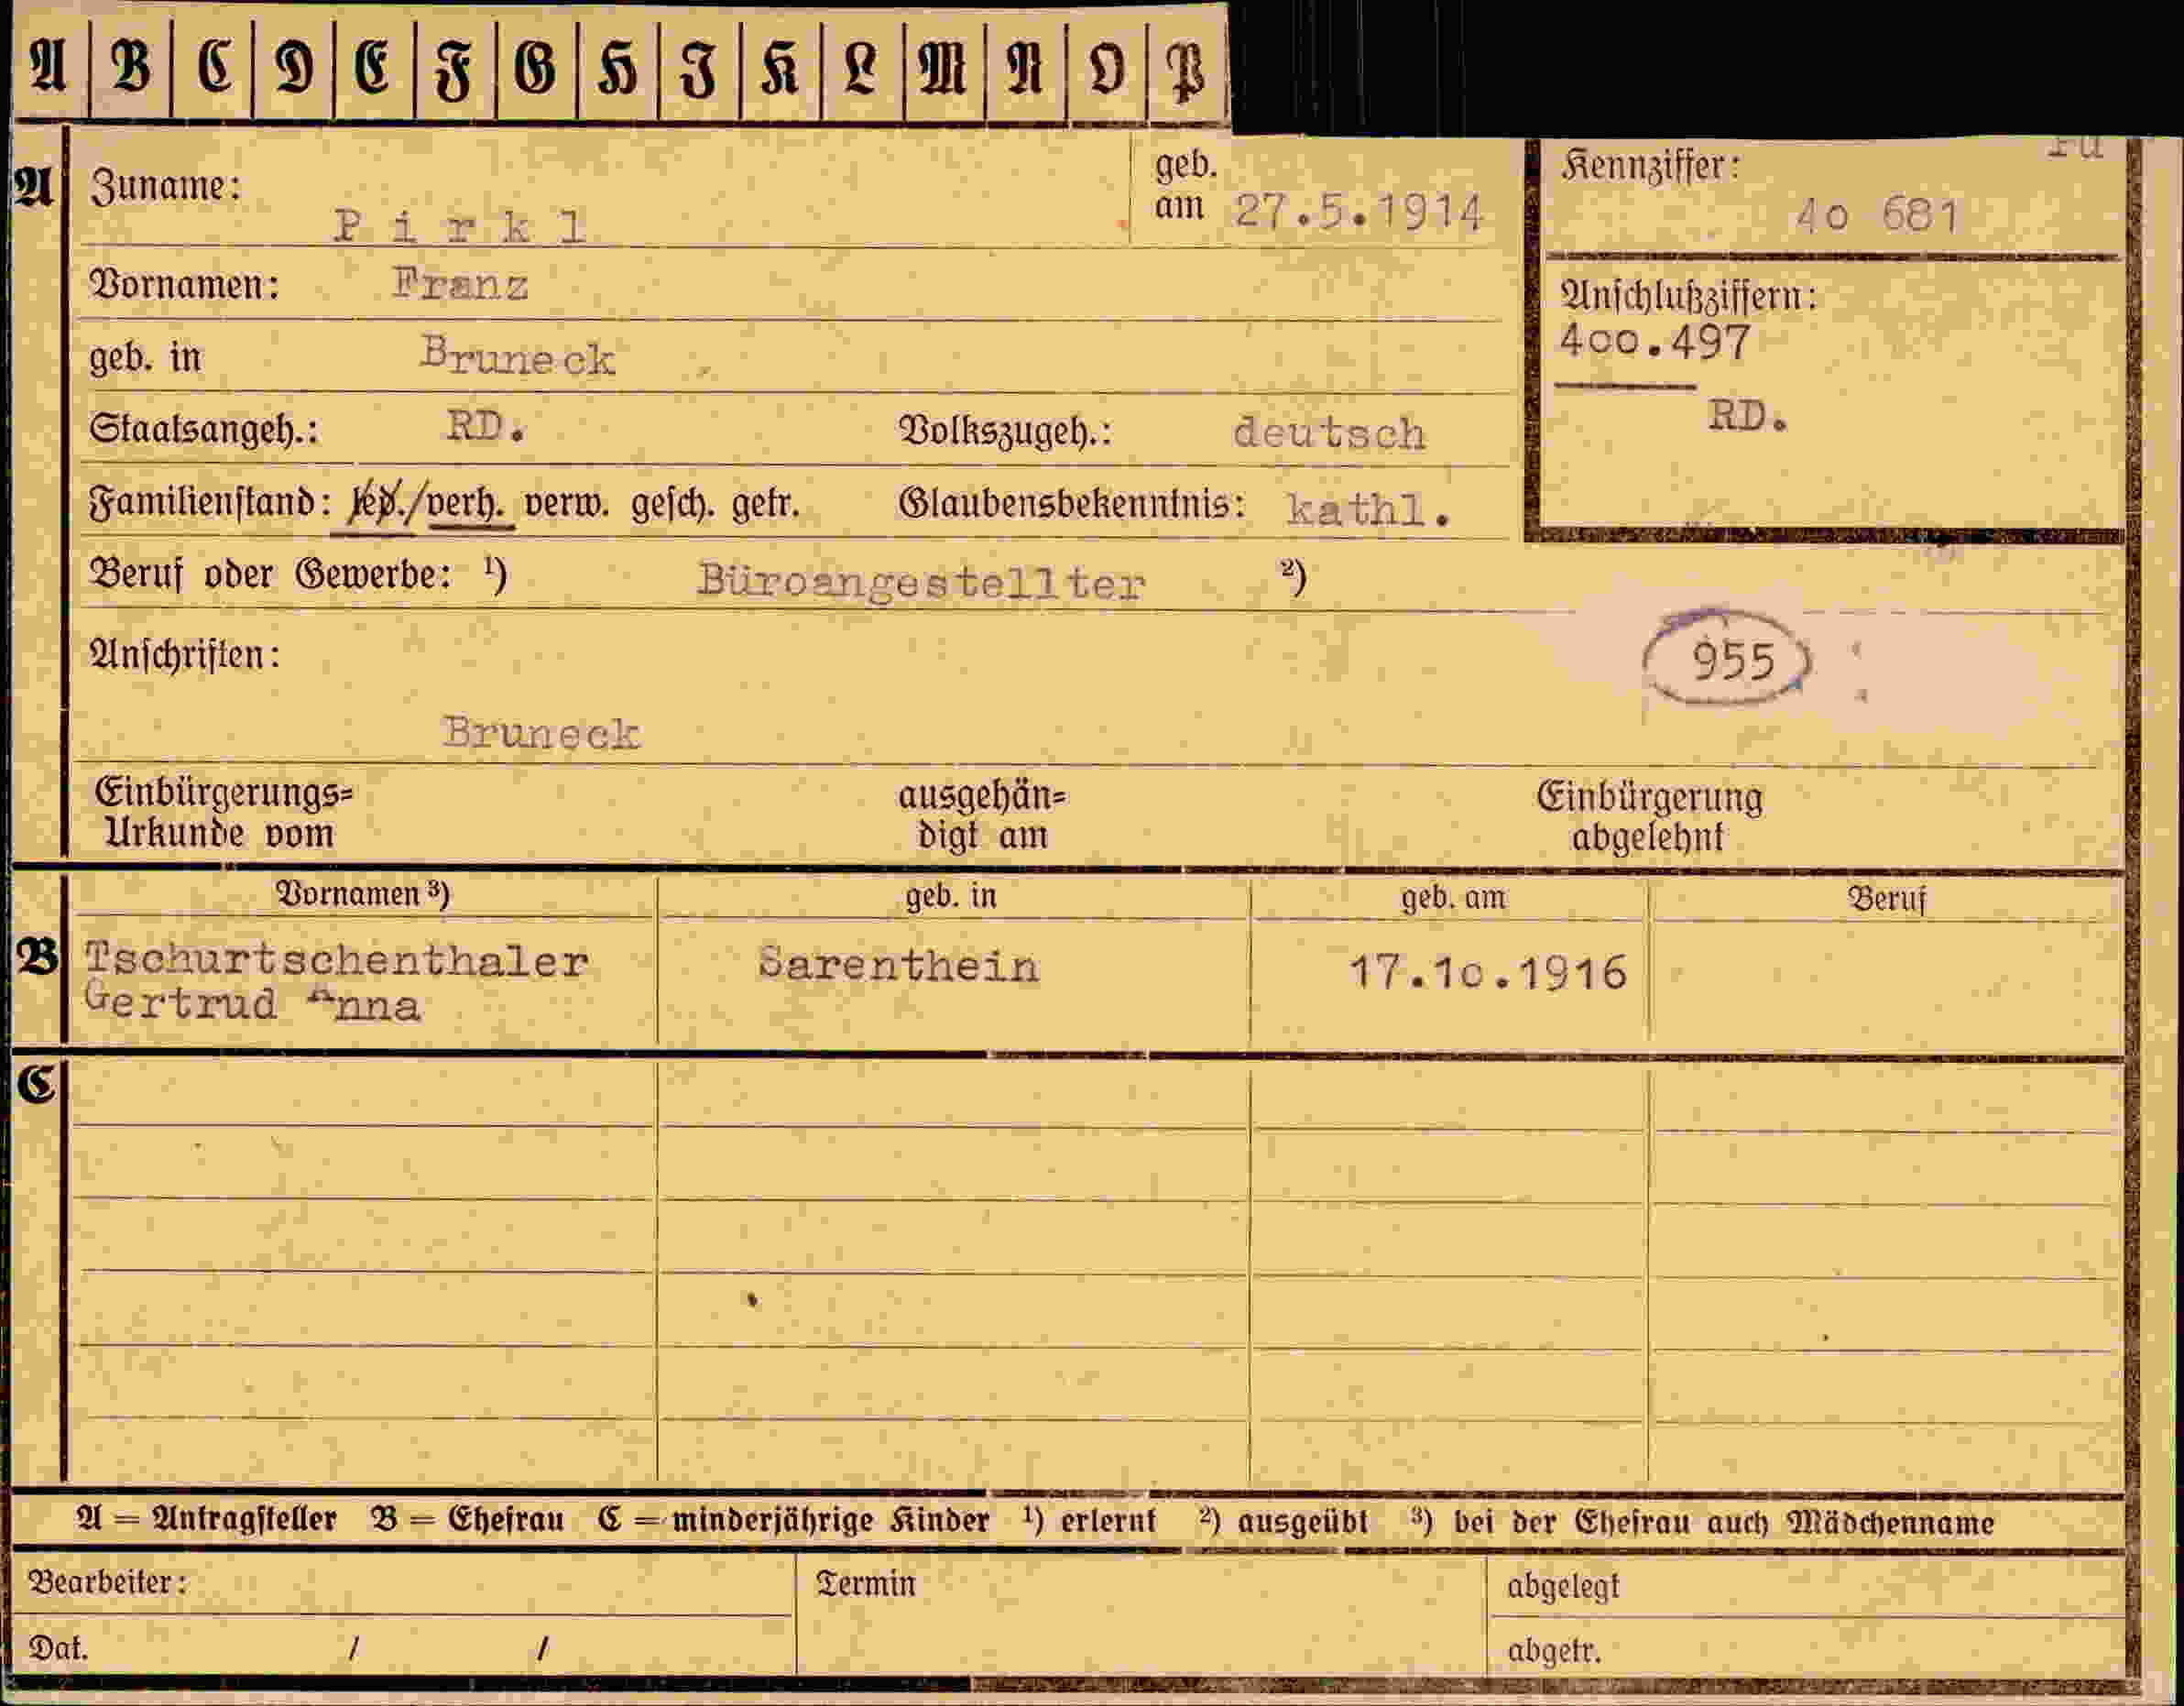 A B C D E F G H I K L M N O P
A Zuname: Pirkl geb. am 27.5.1914
Kennziffer: 4o 681
Vornamen: Franz
Anschlußziffern:
4oo.497
RD.
geb. in Bruneck
Staatsangeh.: RD. Volkszugeh.: deutsch
Familienstand: led./verh. verw. gesch. getr. Glaubensbekenntnis: kathl.
Beruf oder Gewerbe: ¹) Büroangestellter ²)
Anschriften:
955
Bruneck
Einbürgerungs=
Urkunde vom
ausgehän=
digt am
Einbürgerung
abgelehnt
Vornamen ³) geb. in geb. am Beruf
B Tschurtschenthaler Sarenthein 17.1o.1916
Gertrud Anna
C
A = Antragsteller B = Ehefrau C = minderjährige Kinder ¹) erlernt ²) ausgeübt ³) bei der Ehefrau auch Mädchenname
Bearbeiter: Termin abgelegt
Dat. / / abgetr.